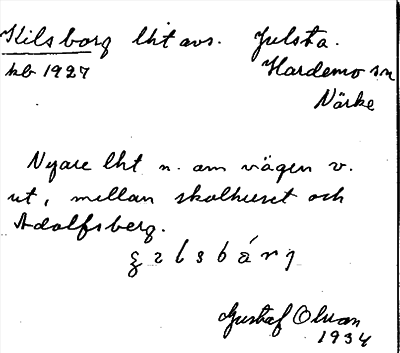 Kilsborg lht avs. Julsta.
kb 1927 Hardemo sn
Närke
Nyare lht n. om vägen v.
ut, mellan skolhuset och
Adolfsberg.
Gustaf Olsson
1934